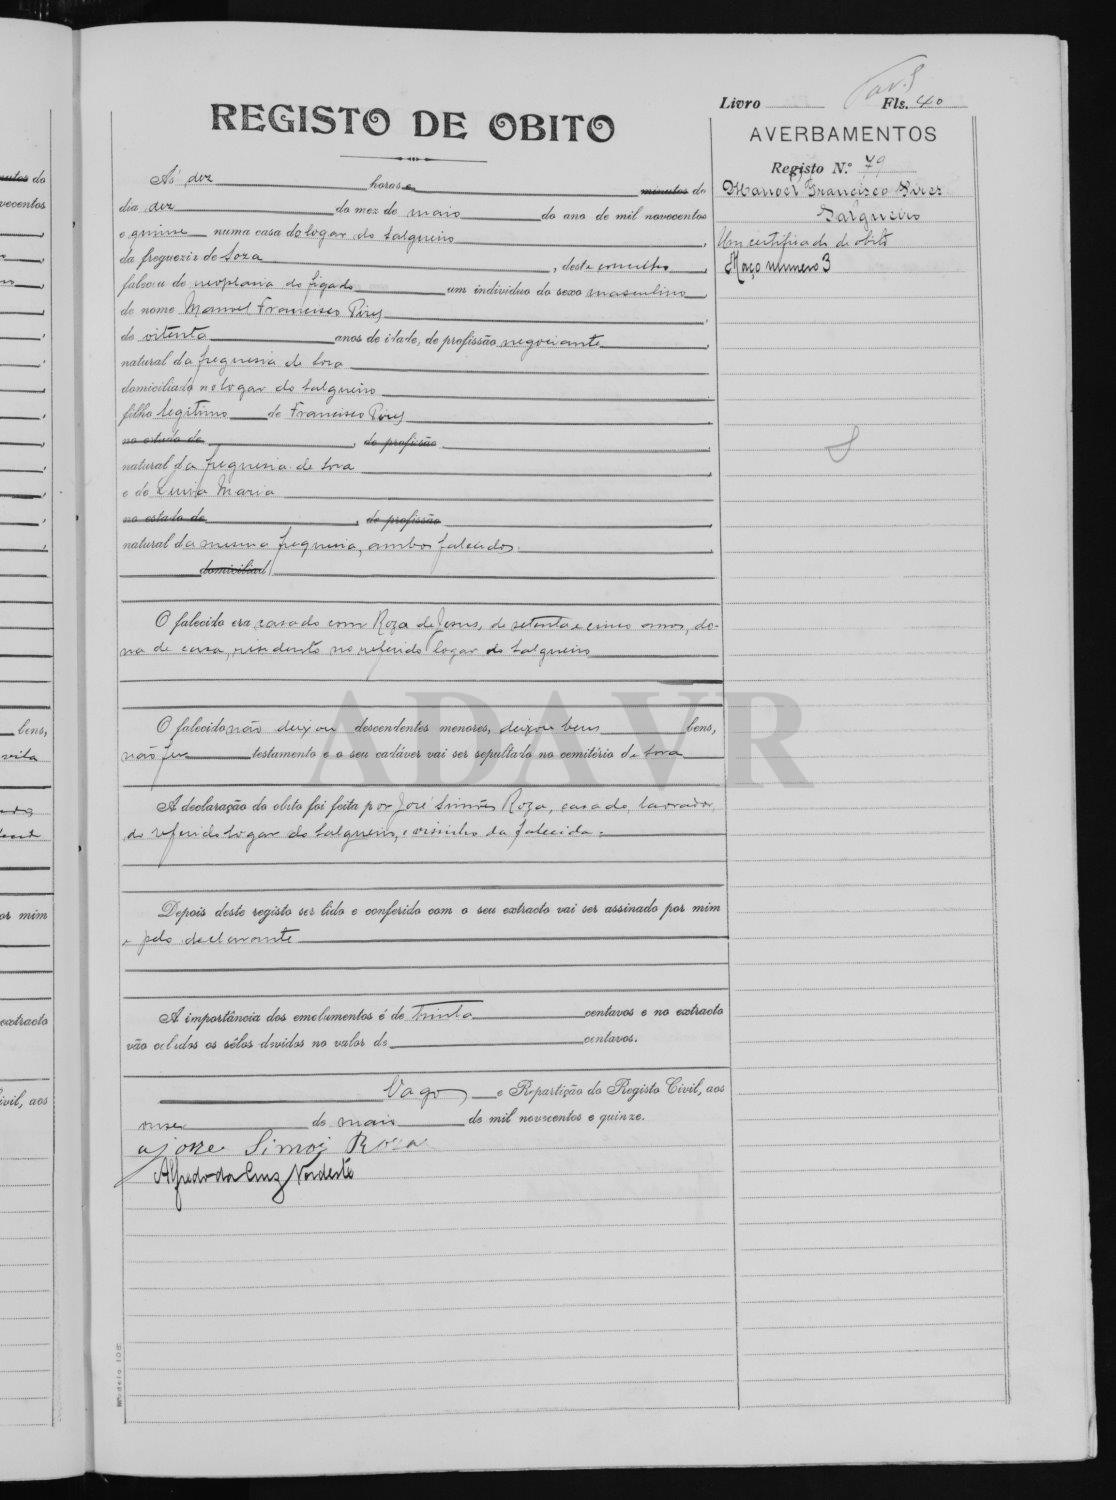 Livro Fls. 40
REGISTO DE OBITO
AVERBAMENTOS
Registo N.º 79
Manoel Francisco Pires
Salgueiro
Um certificado de obito
Maço numero 3
Ás dez horas e minutos do
dia dez do mez de maio do ano de mil novecentos
e quinse numa casa do logar do Salgueiro,
da freguezia de Soza, deste concelho,
faleceu de neoplasia do figado um individuo do sexo masculino
de nome Manuel Francisco Pires,
de oitenta anos de idade, de profissão negociante,
natural da freguesia de Soza
domiciliado no logar do Salgueiro
filho legitimo de Francisco Pires,
no estado de, de profissão,
natural da freguesia de Soza
e de Luiza Maria
no estado de, de profissão,
natural da mesma freguesia, ambos falecidos.
domicilia
O falecido era casado com Roza de Jesus, de setenta e cinco anos, do-
na de casa, residente no referido logar do Salgueiro
O falecido não deixou descendentes menores, deixou bens bens,
não fez testamento e o seu cadáver vai ser sepultado no cemitério de Soza
A declaração do obito foi feita por José Simões Roza, casado, lavrador
do referido logar do Salgueiro, e visinho da falecida.
Depois deste registo ser lido e conferido com o seu extracto vai ser assinado por mim
e pelo declarante
A importância dos emolumentos é de trinta centavos e no extracto
vão colados os sêlos devidos no valor de centavos.
Vagos e Repartição do Registo Civil, aos
onse de maio de mil novecentos e quinze.
a) jose Simoi Roza
Alfredo da Cruz Nordeste
ADAVR
Modelo 108
minutos do
novecentos
bens,
por mim
extracto
Civil, aos